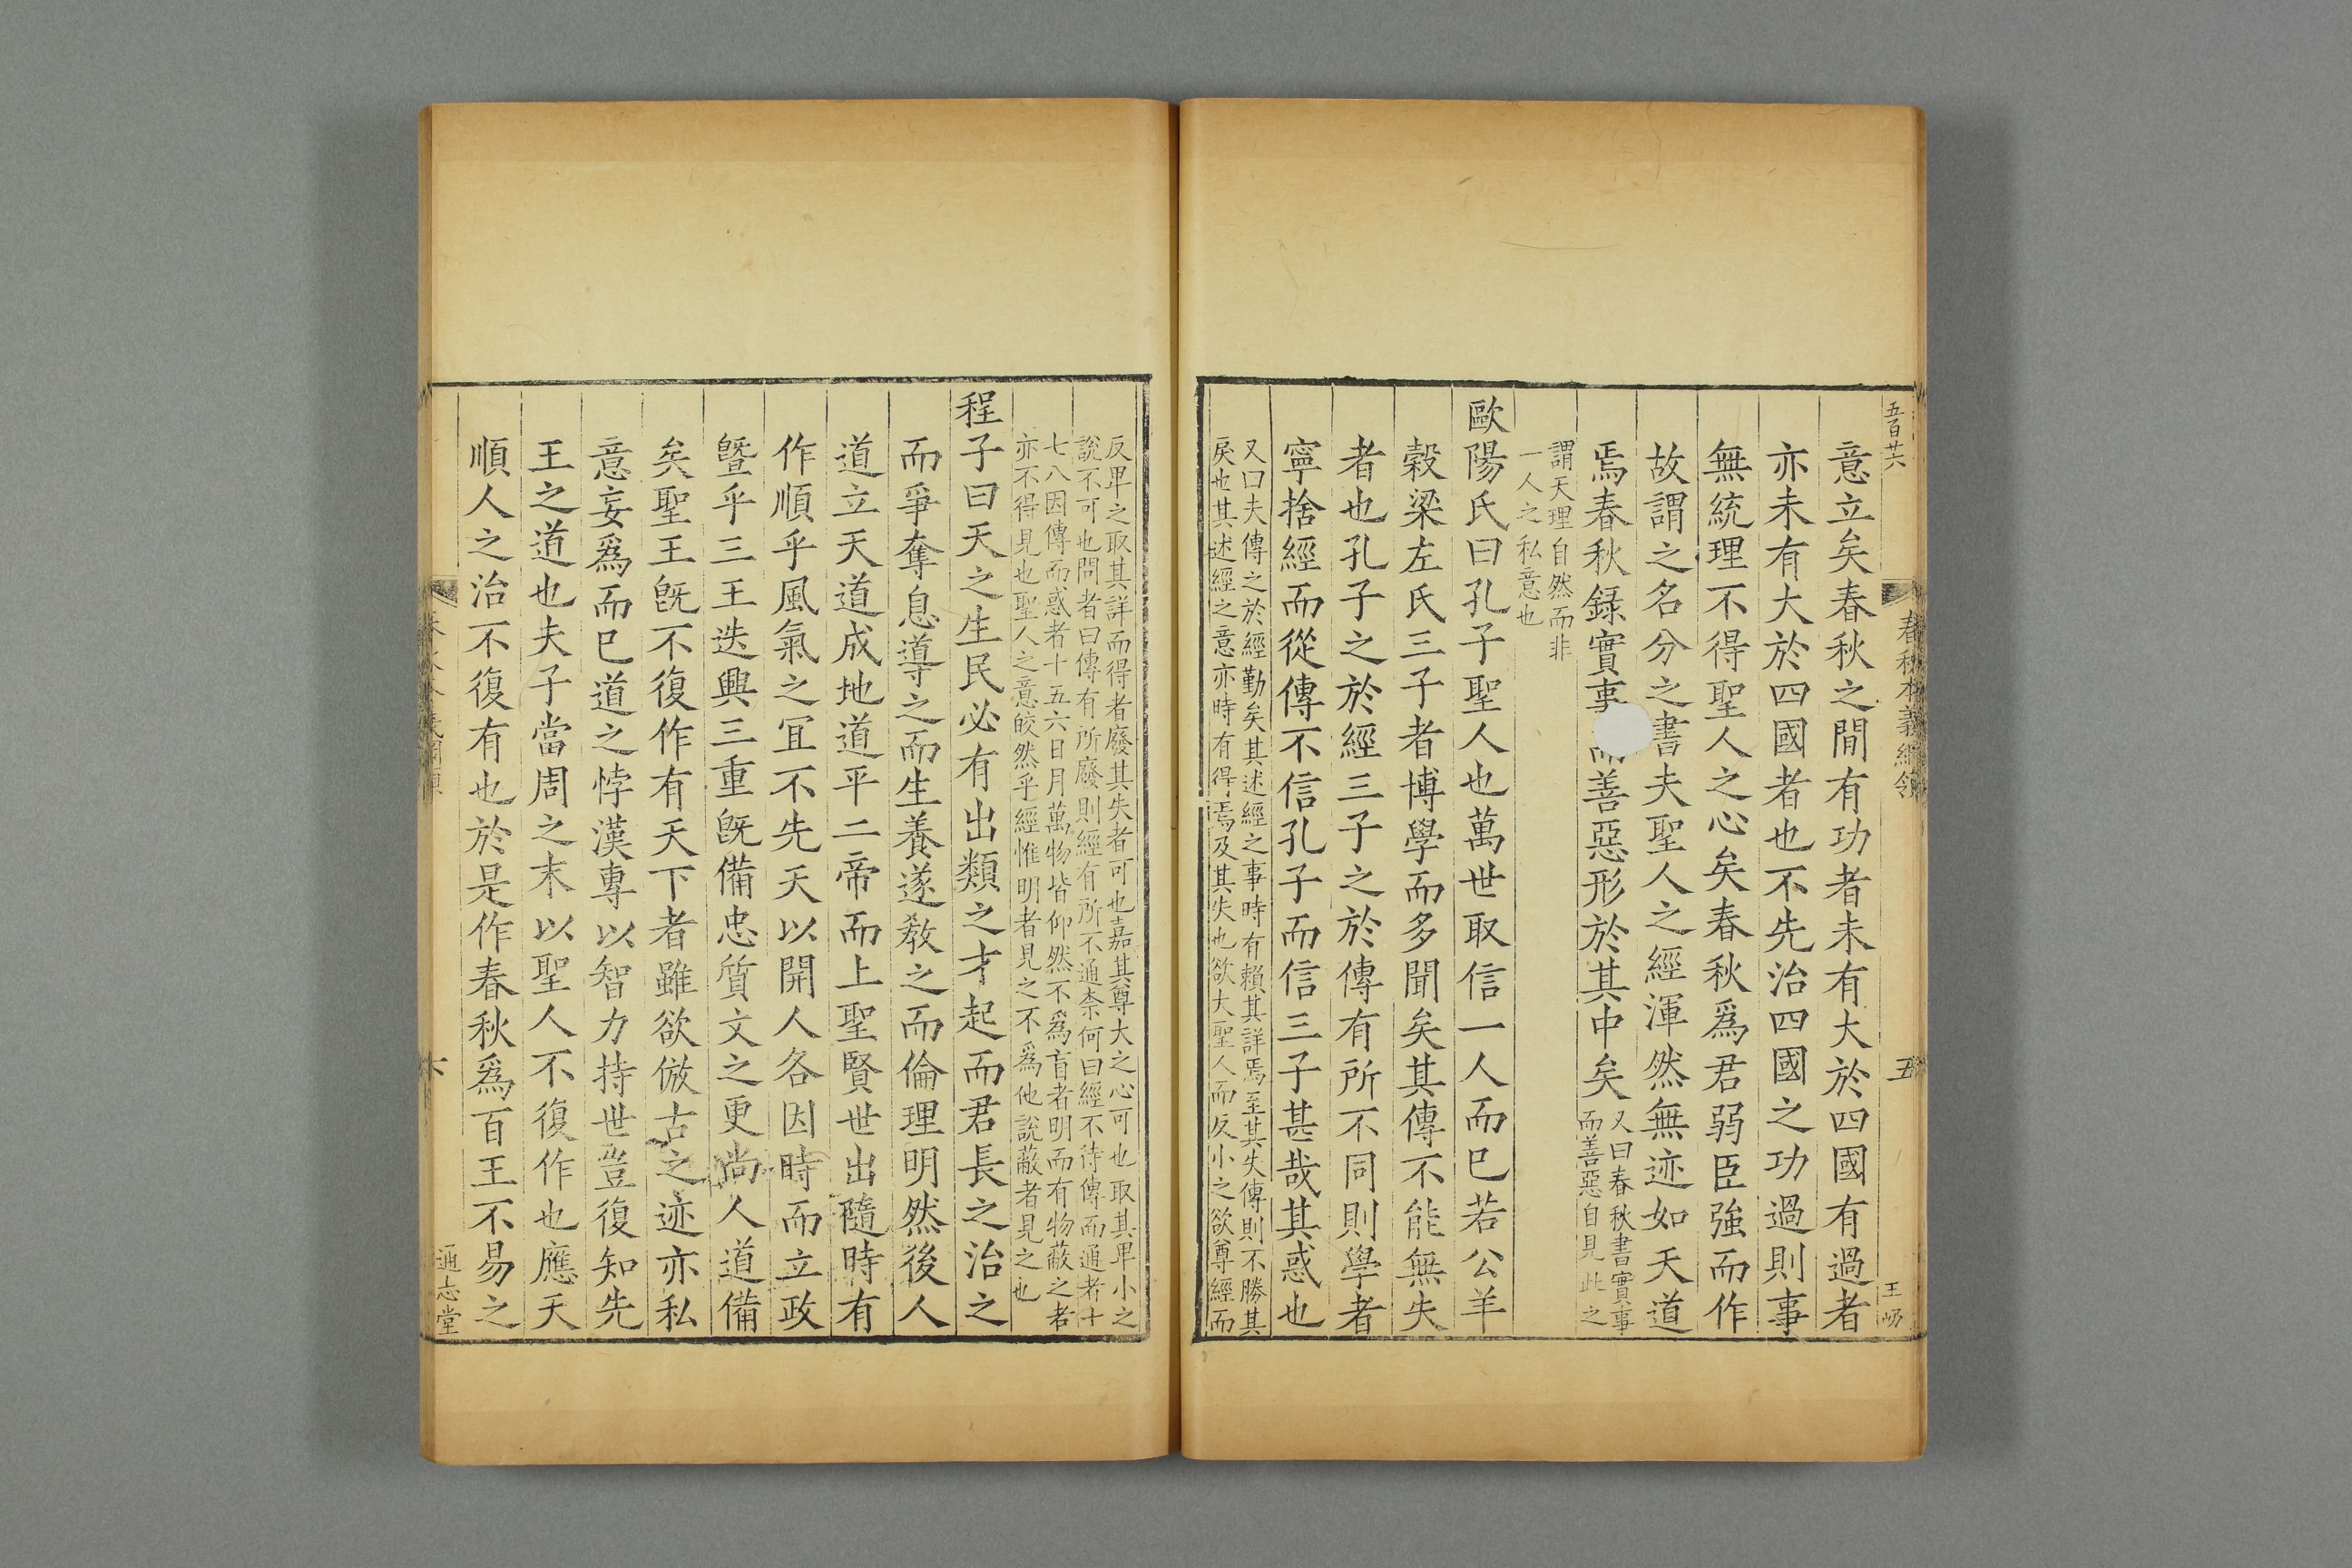 五百廿六
春秋本義綱領
五
王𡵺
意立矣春秋之間有功者未有大於四國有過者
亦未有大於四國者也不先治四國之功過則事
無統理不得聖人之心矣春秋爲君弱臣強而作
故謂之名分之書夫聖人之經渾然無迹如天道
焉春秋録實事而善惡形於其中矣
又曰春秋書實事
而善惡自見此之
謂天理自然而非
一人之私意也
歐陽氏曰孔子聖人也萬世取信一人而已若公羊
穀梁左氏三子者博學而多聞矣其傳不能無失
者也孔子之於經三子之於傳有所不同則學者
寧捨經而從傳不信孔子而信三子甚哉其惑也
又曰夫傳之於經勤矣其述經之事時有賴其詳焉至其失傳則不勝其
戾也其述經之意亦時有得焉及其失也欲大聖人而反小之欲尊經而
反卑之取其詳而得者廢其失者可也嘉其尊大之心可也取其卑小之
說不可也問者曰傳有所廢則經有所不通柰何曰經不待傳而通者十
七八因傳而惑者十五六日月萬物皆仰然不爲盲者明而有物蔽之者
亦不得見也聖人之意皎然乎經惟明者見之不爲他說蔽者見之也
程子曰天之生民必有出類之才起而君長之治之
而爭奪息導之而生養遂敎之而倫理明然後人
道立天道成地道平二帝而上聖賢世出隨時有
作順乎風氣之宜不先天以開人各因時而立政
曁乎三王迭興三重旣備忠質文之更尚人道備
矣聖王旣不復作有天下者雖欲倣古之迹亦私
意妄爲而已道之悖漢專以智力持世豈復知先
王之道也夫子當周之末以聖人不復作也應天
順人之治不復有也於是作春秋爲百王不易之
通志堂